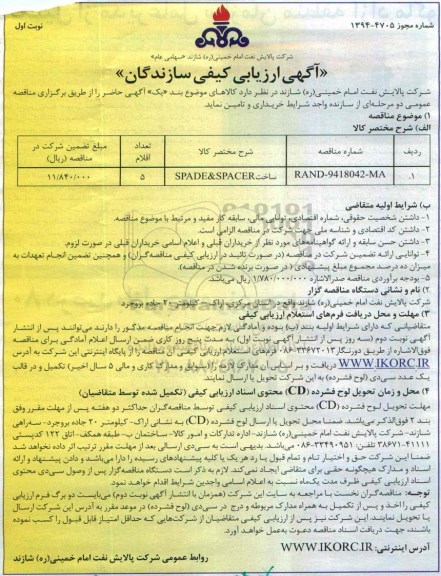 شماره مجوز ۱۳۹۴-۴۷۰۵
نوبت اول
شرکت پالایش نفت امام خمینی(ره) شازند «سهامی عام»
«آگهی ارزیابی کیفی سازندگان»
شرکت پالایش نفت امام خمینی(ره) شازند در نظر دارد کالاهای موضوع بند «یک» آگهی حاضر را از طریق برگزاری مناقصه
عمومی دو مرحله‌ای از سازنده واجد شرایط خریداری و تامین نماید.
۱) موضوع مناقصه
الف) شرح مختصر کالا
ردیف شماره مناقصه شرح مختصر کالا تعداد اقلام مبلغ تضمین شرکت در مناقصه (ریال)
۱. RAND-9418042-MA ساخت SPADE&SPACER ۵ ۱۱/۸۴۰/۰۰۰
ب) شرایط اولیه متقاضی
۱- داشتن شخصیت حقوقی، شماره اقتصادی، توانایی مالی، سابقه کار مفید و مرتبط با موضوع مناقصه.
۲- داشتن کد اقتصادی و شناسه ملی جهت شرکت در مناقصه الزامی است.
۳- داشتن حسن سابقه و ارائه گواهینامه‌های مورد نظر از خریداران قبلی و اعلام اسامی خریداران قبلی در صورت لزوم.
۴- توانایی ارائه تضمین شرکت در مناقصه (در صورت تائید در ارزیابی کیفی مناقصه‌گران) و همچنین تضمین انجام تعهدات به
میزان ده درصد مجموع مبلغ پیشنهادی (در صورت برنده شدن در مناقصه).
۵- بودجه برآوردی مناقصه صدرالاشاره ۱/۷۸۰/۰۰۰/۰۰۰ ریال می‌باشد.
۲) نام و نشانی دستگاه مناقصه گزار
شرکت پالایش نفت امام خمینی (ره) شازند واقع در استان مرکزی- اراک- کیلومتر ۲۰ جاده بروجرد
۳) مهلت و محل دریافت فرم‌های استعلام ارزیابی کیفی
متقاضیانی که دارای شرایط اولیه بند (ب) بوده و آمادگی لازم جهت انجام مناقصه مذکور را دارند می‌توانند پس از انتشار
آگهی نوبت دوم (سه روز پس از انتشار آگهی نوبت اول) به مدت پنج روز کاری ضمن ارسال اعلام آمادگی برای مناقصه
فوق‌الاشاره از طریق دورنگار ۰۸۶-۳۳۶۷۲۰۱۳ فرم‌های استعلام ارزیابی کیفی این مناقصه را از پایگاه اینترنتی این شرکت به آدرس
WWW.IKORC.IR دریافت و بر اساس آن مدارک لازم را (سوابق و مدارک کاری و مالی ۵ سال اخیر) تکمیل و در قالب
یک عدد سی‌دی (لوح فشرده) به این شرکت تحویل یا ارسال نمایند.
۴) محل و زمان تحویل لوح فشرده (CD) محتوی اسناد ارزیابی کیفی (تکمیل شده توسط متقاضیان)
مهلت تحویل لوح فشرده (CD) محتوی اسناد ارزیابی کیفی توسط مناقصه‌گران حداکثر دو هفته پس از مهلت مقرر وفق
بند ۳ فوق‌الذکر می‌باشد. ضمنا محل تحویل یا ارسال لوح فشرده (CD) به نشانی اراک- کیلومتر ۲۰ جاده بروجرد- سه‌راهی
شازند- شرکت پالایش نفت امام خمینی(ره) شازند- اداره تدارکات و امور کالا- ساختمان ب- طبقه همکف- اتاق ۱۲۲ کدپستی
ضمنا این شرکت حق و اختیار تام و تمام قبول یا رد هریک یا کلیه پیشنهادهای رسیده را دارا می‌باشد و دادن پیشنهاد و ارائه
اسناد و مدارک هیچگونه حقی برای متقاضی ایجاد نمی‌کند. لازم به ذکر است دستگاه مناقصه‌گزار پس از وصول سی‌دی محتوی
اسناد ارزیابی کیفی ظرف مدت یک‌ماه نسبت به اعلام اسامی واجدین شرایط اقدام خواهد نمود.
توجه: مناقصه‌گران نخست با مراجعه به سایت این شرکت (همزمان با انتشار آگهی نوبت دوم) می‌بایست دو برگ فرم ارزیابی
کیفی را اخذ و پس از تکمیل به همراه مدارک مربوطه و درج در سی‌دی (لوح فشرده) در موعد مقرر به آدرس این شرکت ارسال
یا تحویل نمایند. این شرکت نیز پس از ارزیابی کیفی متقاضیان از شرکت‌هایی که حداقل امتیاز قابل قبول را کسب نموده
باشند، جهت دریافت اسناد مناقصه دعوت به‌عمل خواهد آورد.
آدرس اینترنتی: WWW.IKORC.IR
روابط عمومی شرکت پالایش نفت امام خمینی(ره) شازند